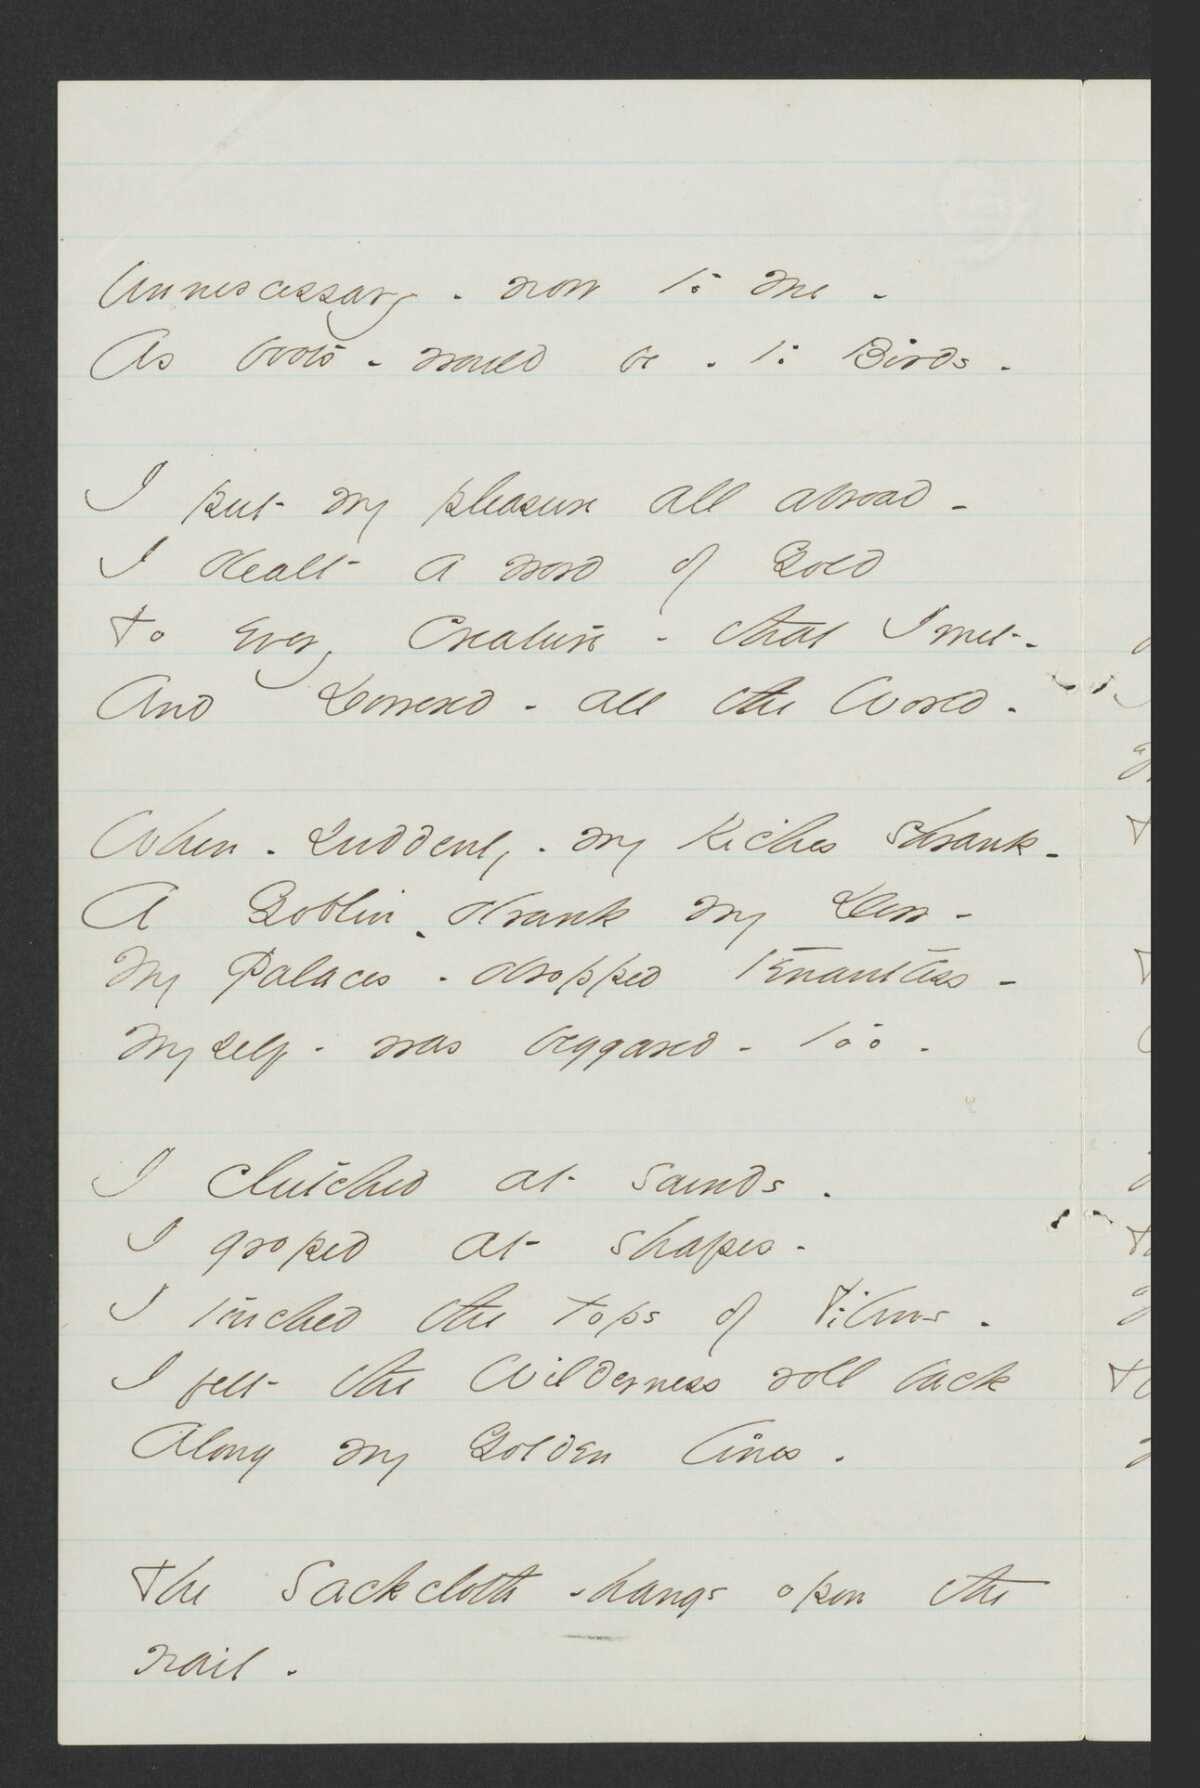 Unnescessary - now to me -
As boots - would be - to Birds -
I put my pleasure all abroad -
I dealt a word of Gold
To every Creature - that I met -
And Dowered - all the World -
When - suddenly - my Riches shrank -
A Goblin - drank my Dew -
My Palaces - dropped tenantless -
Myself - was beggared - too -
I clutched at sounds -
I groped at shapes -
I touched the tops of Films -
I felt the Wilderness roll back
Along my Golden lines -
The Sackcloth - hangs opon the
nail -